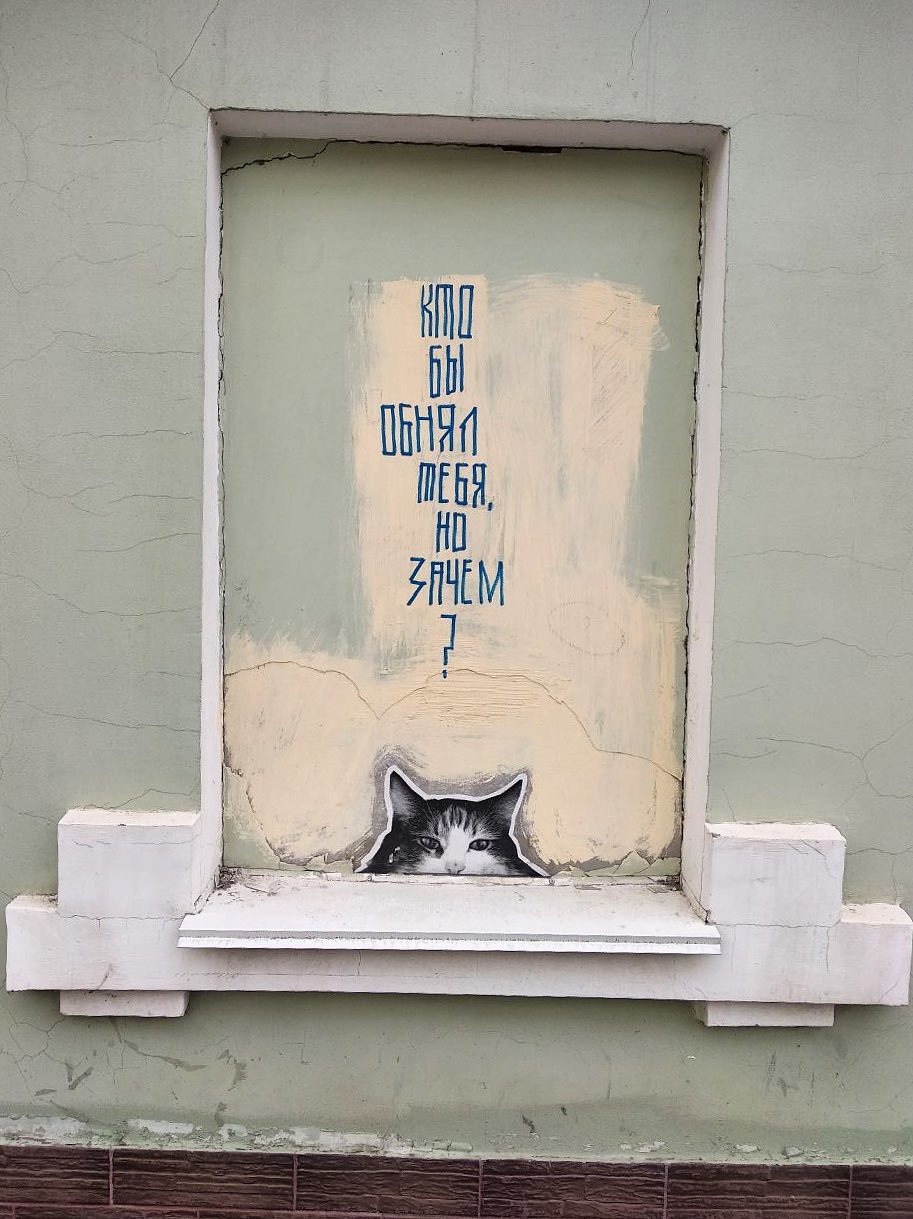 КТО
БЫ
ОБНЯЛ
ТЕБЯ,
НО
ЗАЧЕМ
?